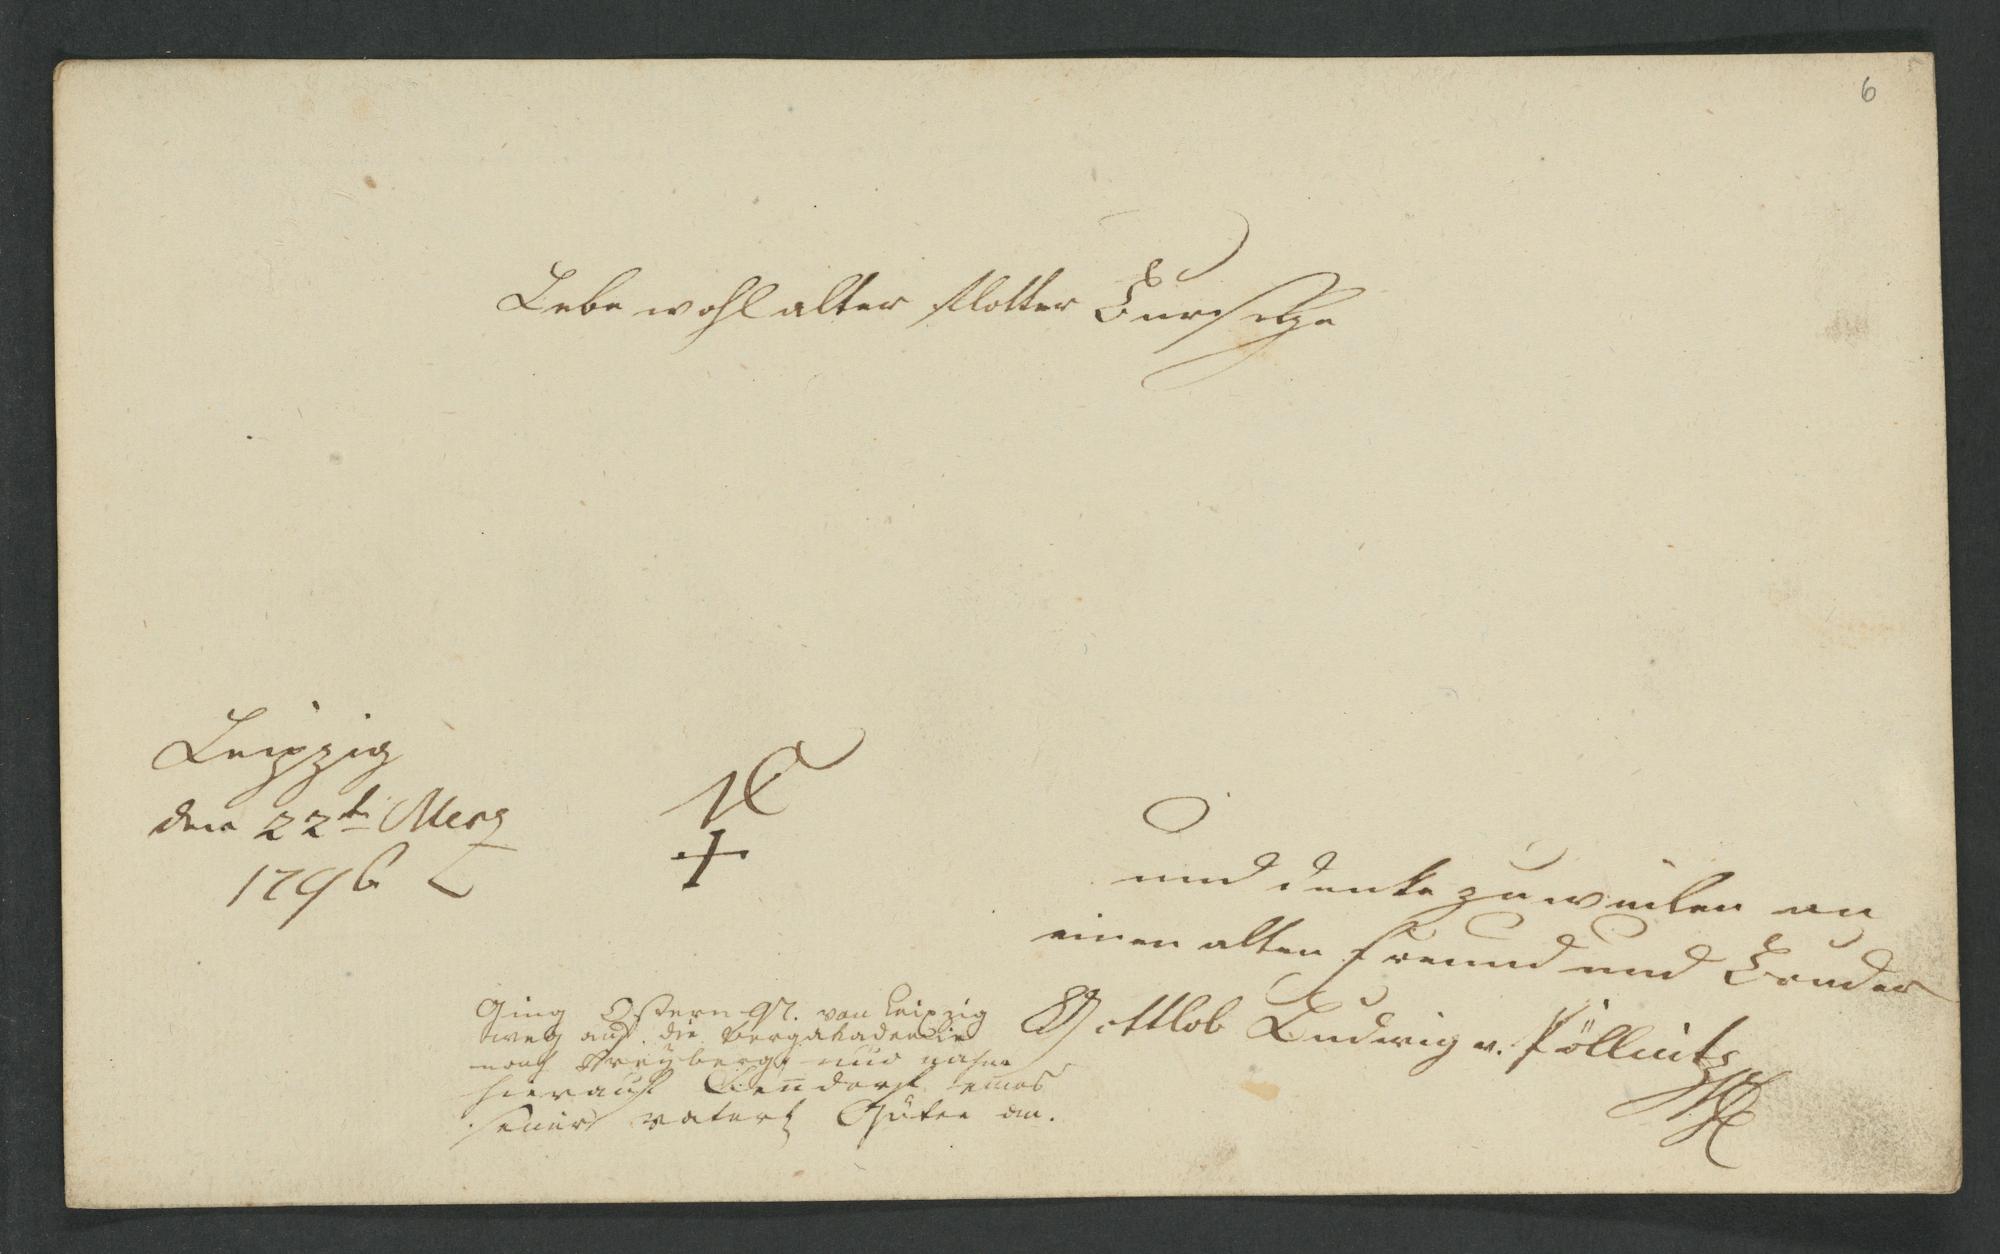 6
Lebe wohl alter flotter Bursche
Leipzig
den 22t Merz
1796
und denke zuweilen an
einen alten Freund und Bruder
Gottlob Ludwig v. Pöllnitz
Ging Ostern 97. von Leipzig
weg auf die Bergakademie
nach Freyberg, und nahm
hierauf eines
seiner Vaters Güter an.